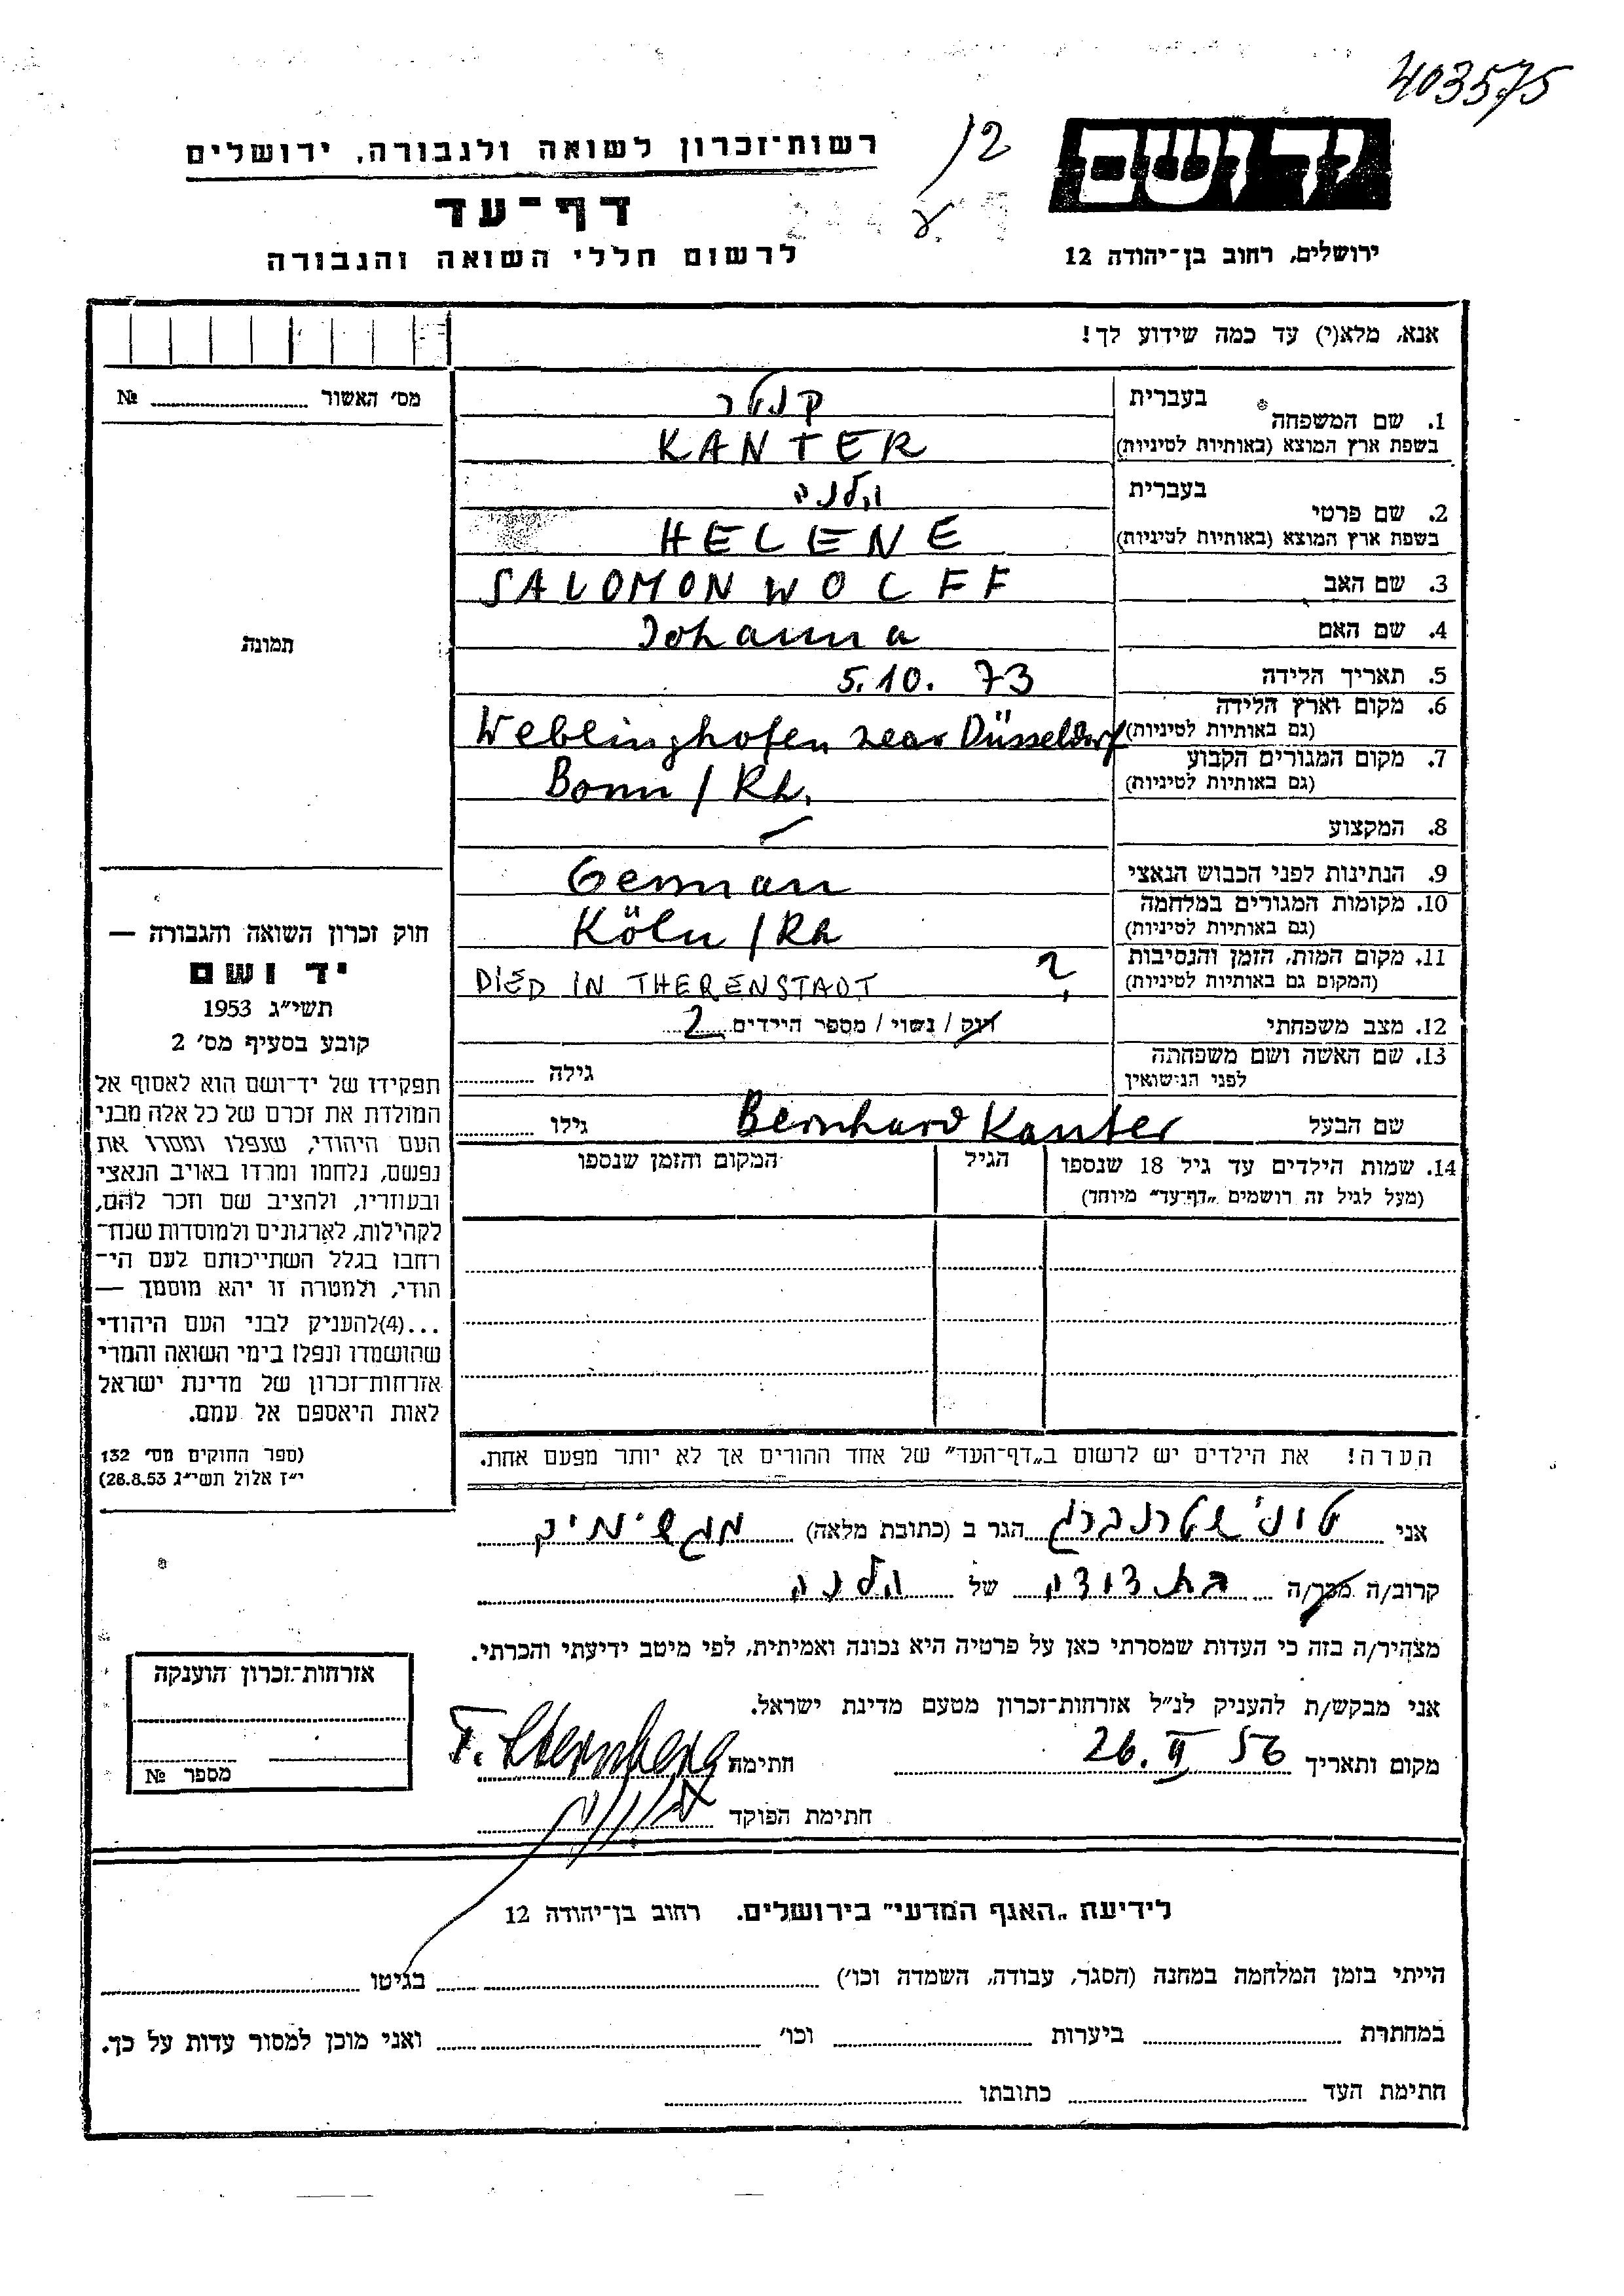 403575
יד ושם
12
רשות־זכרון לשואה ולגבורה, ירושלים
דף־עד
לרשום חללי השואה והגבורה
ירושלים, רחוב בן־יהודה 12
אנא, מלא(י) עד כמה שידוע לך!
מס׳ האשור № 
1. שם המשפחה בעברית קנטר
בשפת ארץ המוצא (באותיות לטיניות) KANTER
2. שם פרטי בעברית הלנה
בשפת ארץ המוצא (באותיות לטיניות) HELENE
3. שם האב SALOMON WOLFF
4. שם האם Johanna
5. תאריך הלידה 5.10. 73
6. מקום וארץ הלידה (גם באותיות לטיניות) Weblinghofen near Düsseldorf
7. מקום המגורים הקבוע (גם באותיות לטיניות) Bonn / Rh.
8. המקצוע –
9. הנתינות לפני הכבוש הנאצי German
10. מקומות המגורים במלחמה (גם באותיות לטיניות) Köln / Rh
11. מקום המות, הזמן והנסיבות (המקום גם באותיות לטיניות) ? DIED IN THERENSTADT
12. מצב משפחתי רוק / נשוי / מספר הילדים 2
13. שם האשה ושם משפחתה לפני הנישואין גילה
שם הבעל Bernhard Kanter גילו
14. שמות הילדים עד גיל 18 שנספו הגיל המקום והזמן שנספו
(מעל לגיל זה רושמים „דף־עד” מיוחד)
תמונה
חוק זכרון השואה והגבורה —
יד ושם
תשי״ג 1953
קובע בסעיף מס׳ 2
תפקידו של יד־ושם הוא לאסוף אל
המולדת את זכרם של כל אלה מבני
העם היהודי, שנפלו ומסרו את
נפשם, נלחמו ומרדו באויב הנאצי
ובעוזריו, ולהציב שם וזכר להם,
לקהילות, לארגונים ולמוסדות שנח־
רחבו בגלל השתייכותם לעם הי־
הודי, ולמטרה זו יהא מוסמך —
...(4)להעניק לבני העם היהודי
שהושמדו ונפלו בימי השואה והמרי
אזרחות־זכרון של מדינת ישראל
לאות היאספם אל עמם.
(ספר החוקים מס׳ 132
י״ז אלול תשי״ג 26.8.53)
הערה! את הילדים יש לרשום ב„דף־העד” של אחד ההורים אך לא יותר מפעם אחת.
אני טוני שטרנברג הגר ב (כתובת מלאה)
קרוב/ה מכר/ה בת דודה של הלנה
מצהיר/ה בזה כי העדות שמסרתי כאן על פרטיה היא נכונה ואמיתית, לפי מיטב ידיעתי והכרתי.
אני מבקש/ת להעניק לנ״ל אזרחות־זכרון מטעם מדינת ישראל.
מקום ותאריך 26. II 56 חתימה T. Sternberg
חתימת הפוקד
אזרחות־זכרון הוענקה
מספר №
לידיעת „האגף המדעי” בירושלים. רחוב בן־יהודה 12
הייתי בזמן המלחמה במחנה (הסגר, עבודה, השמדה וכו׳) בגיטו
במחתרת ביערות וכו׳ ואני מוכן למסור עדות על כך.
חתימת העד כתובתו